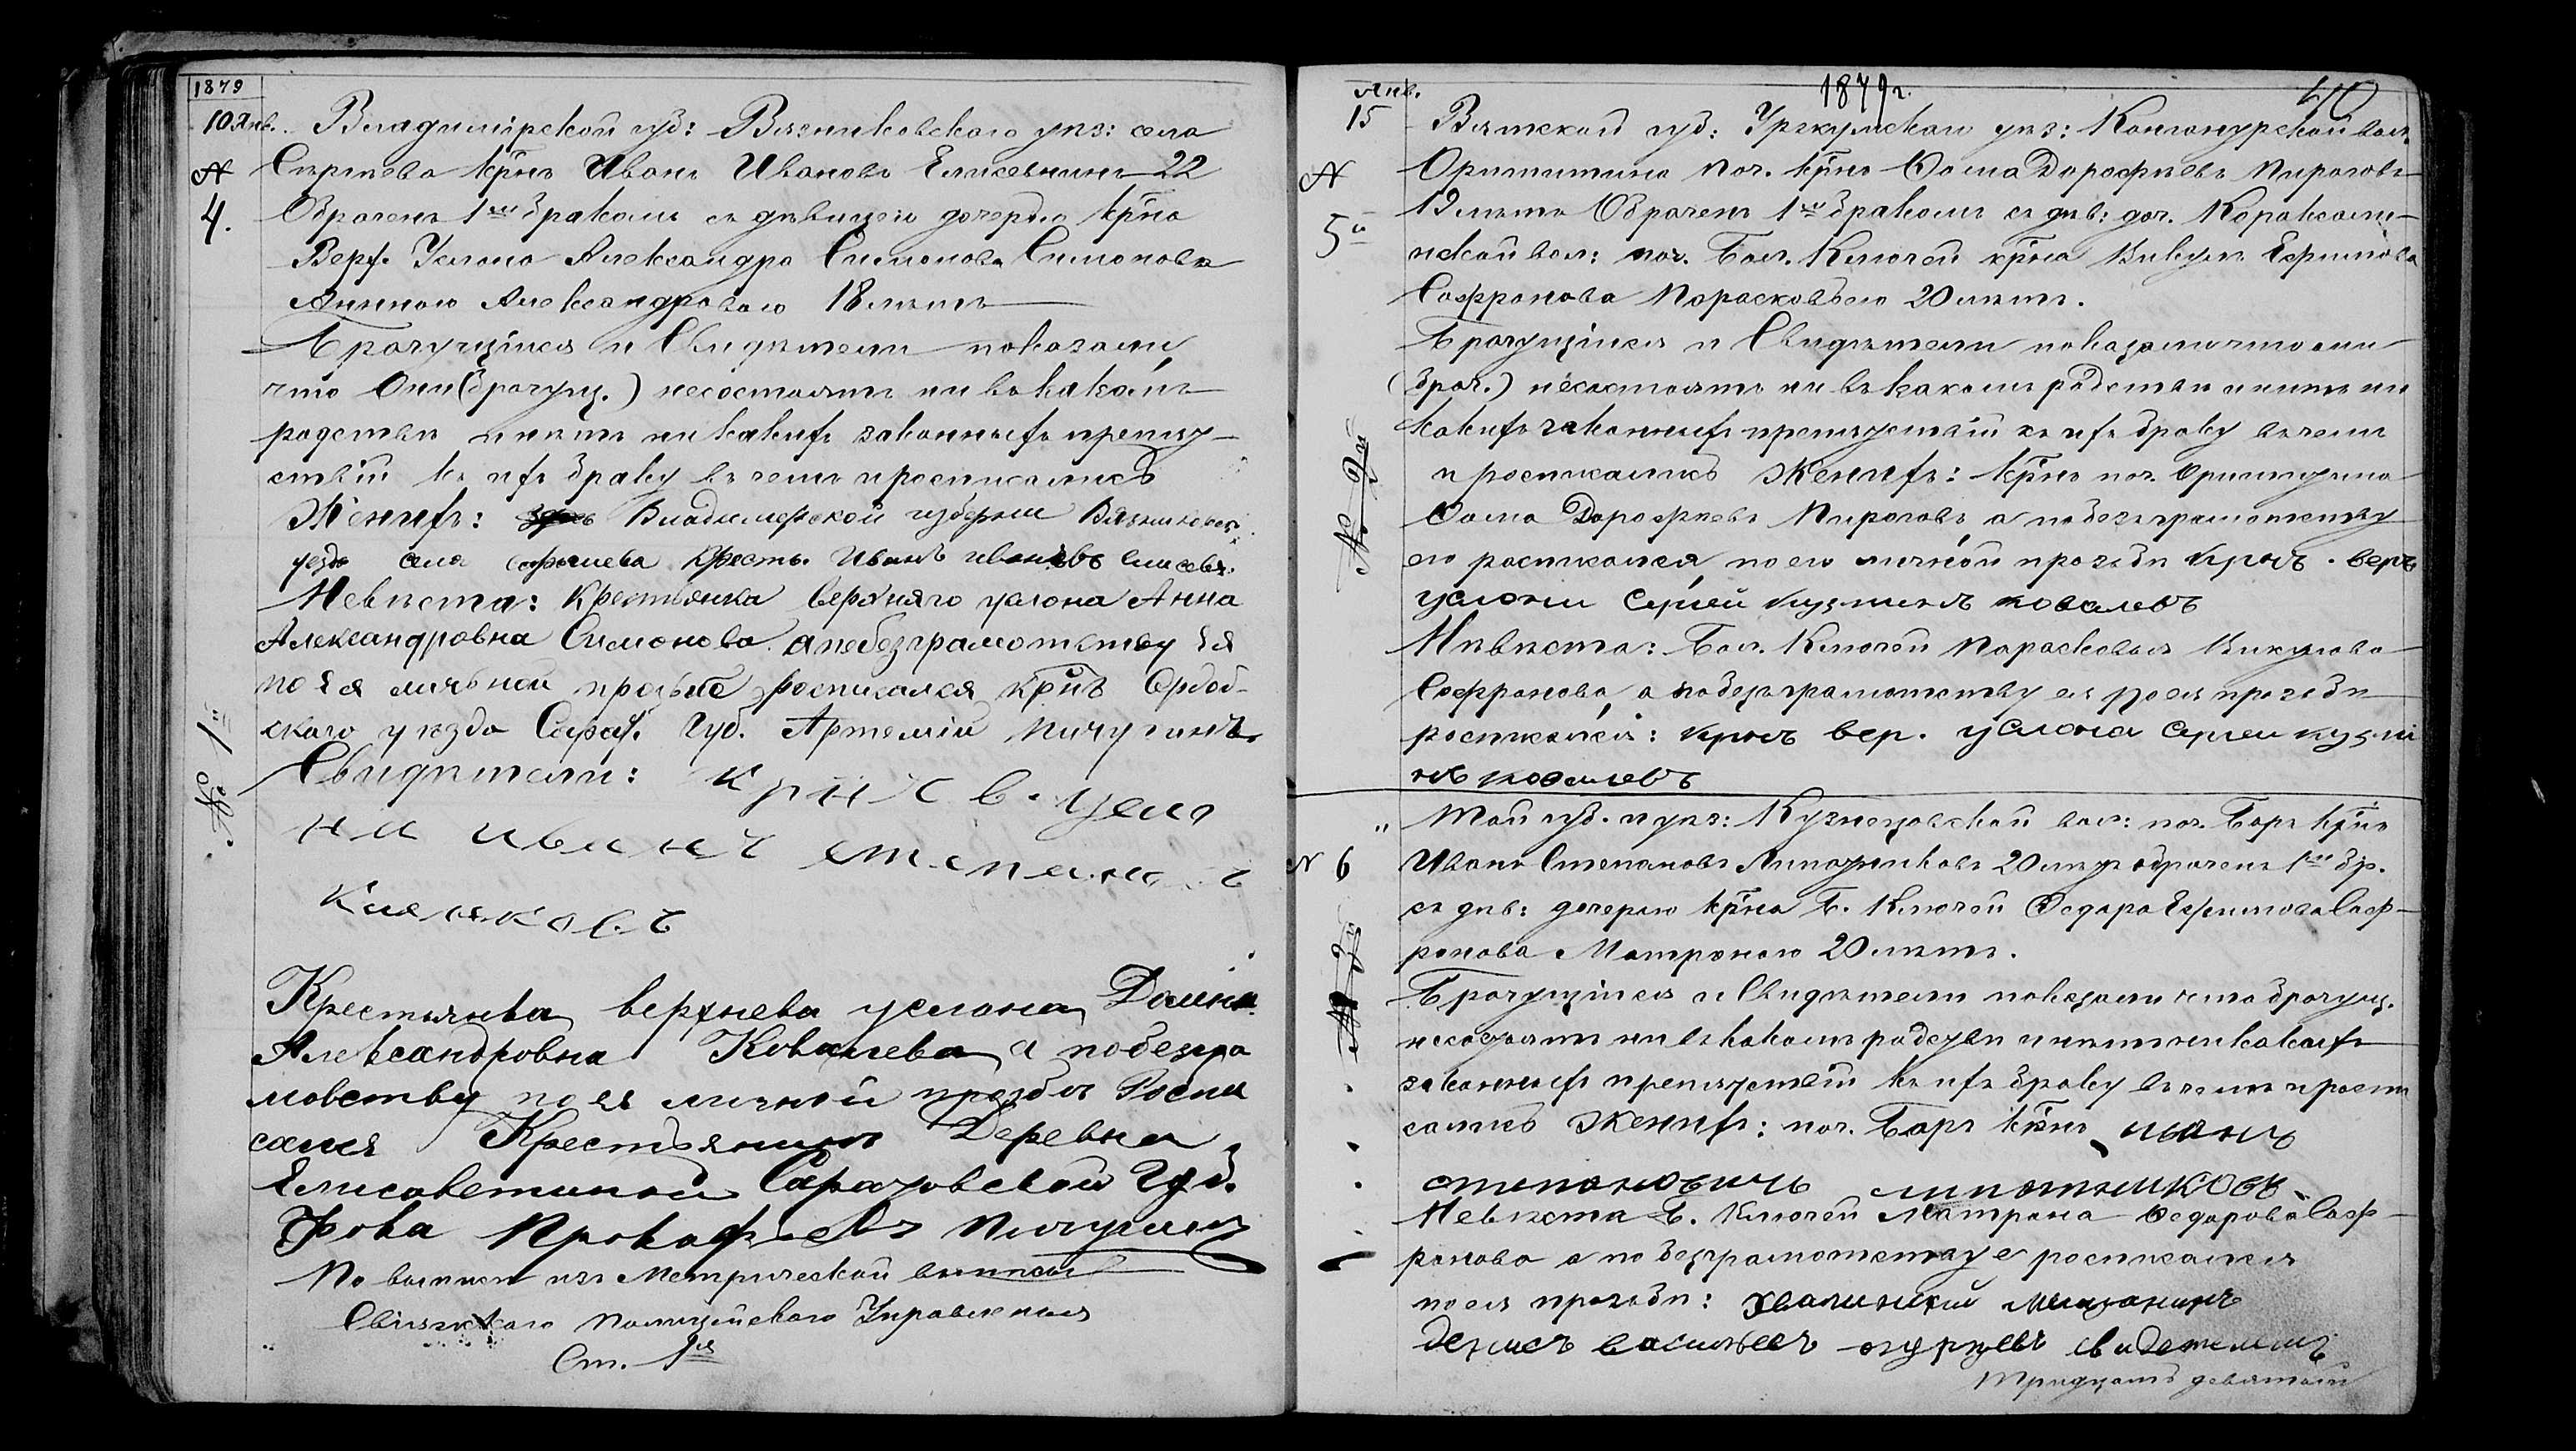 1879
10 Янв. Владимірской губ: Вязниковскаго уѣз: села
Сергѣева Кр̃нъ Иванъ Ивановъ Елисѣевъ 22
№ 4. Обрачен 1ᵐ бракомъ съ дѣвицею дочерью Кр̃на
Верх. Услона Александра Симонова Симонова
Анною Александровою 18 лѣтъ
Брачущіеся и Свидѣтели показали
что Они (брачущ.) несостоятъ ни въ какомъ
родствѣ и нѣтъ никакихъ законныхъ препят-
ствій къ ихъ браку въ чемъ и росписались
Женихъ: Владимерской губерни Вязниковск
уезда села Крестъ. Иванъ ивановъ елисевъ
Невѣста: Крестьянка Верхняго услона Анна
Александровна Симонова а по безграмотьству Ея
по Ея личьной прозьбе росписался крнъ Сердоб-
скаго уѣзда Сарат. Губ. Артемій Пичугинъ
№ 1ᵘ Свидѣтели: крнъ в. усло
на иванъ степановъ
Крестьянка верхнева услона
Александровна Ковалева а по безгра
мовству по ея личной прозбѣ Роспи
сался Крестьянинъ Деревни
Елисаветиной Саратовской Губ.
Прокофьевъ Пичугинъ
По выписи изъ Метрической выписи
Свіяжскаго Полицейскаго Управленія
Ст. 1ᵃ
1879 г.
40
Янв.
15 Вятской губ: Уржумскаго уѣз: Конганурской вол.
Поч. Кр̃нъ Ѳома Дорофѣевъ Пироговъ
№ 5ᵘ 19 лѣтъ Обрачен 1ᵐ бракомъ съ дѣв: доч.
ской вол: поч. Бол. Ключей кр̃на Викула Ефимова
Софронова Парасковьею 20 лѣтъ.
Брачущіеся и Свидѣтели показали что они
(брач.) несостоятъ ни въ какомъ родствѣ и нѣтъ ни
какихъ законныхъ препятствій къ ихъ браку въ чемъ
и росписались Женихъ: Кр̃нъ поч.
Ѳома Дорофѣевъ Пироговъ а по безграмотству
его росписался по его личной прозьбѣ крнъ. верх
услони Сергей кузминъ ковалевъ
Невѣста: Бол. Ключей Парасковья Викулова
Софронова, а по безграмотству ея по ея прозьбѣ
росписался: крнъ вер. услона Сергеи кузми
нъ ковалевъ
" Той губ. и уѣз: Кузнецовской вол: поч. Боръ Кр̃нъ
№ 6 Иванъ Степановъ Липатниковъ 20 лѣтъ обрачен 1ᵐ бр.
съ дѣв: дочерью Кр̃на Б. Ключей Ѳедора Ефимова Соф-
ронова Матроною 20 лѣтъ.
Брачущіеся и Свидѣтели показали что брачущ.
несостоятъ ни въ какомъ родствѣ и нѣтъ никакихъ
законныхъ препятствій къ ихъ браку въ чемъ и роспи
сались Женихъ: поч. Боръ Кр̃нъ иванъ
степановичь липатниковъ
Невѣста Б. Ключей Матрона Ѳедорова Соф-
ронова а по безграмотству е росписался
по ея прозьбѣ: хвалинскій мещанинъ
денисъ васильевъ огурцевъ свидетелемъ
Тридцать девятый